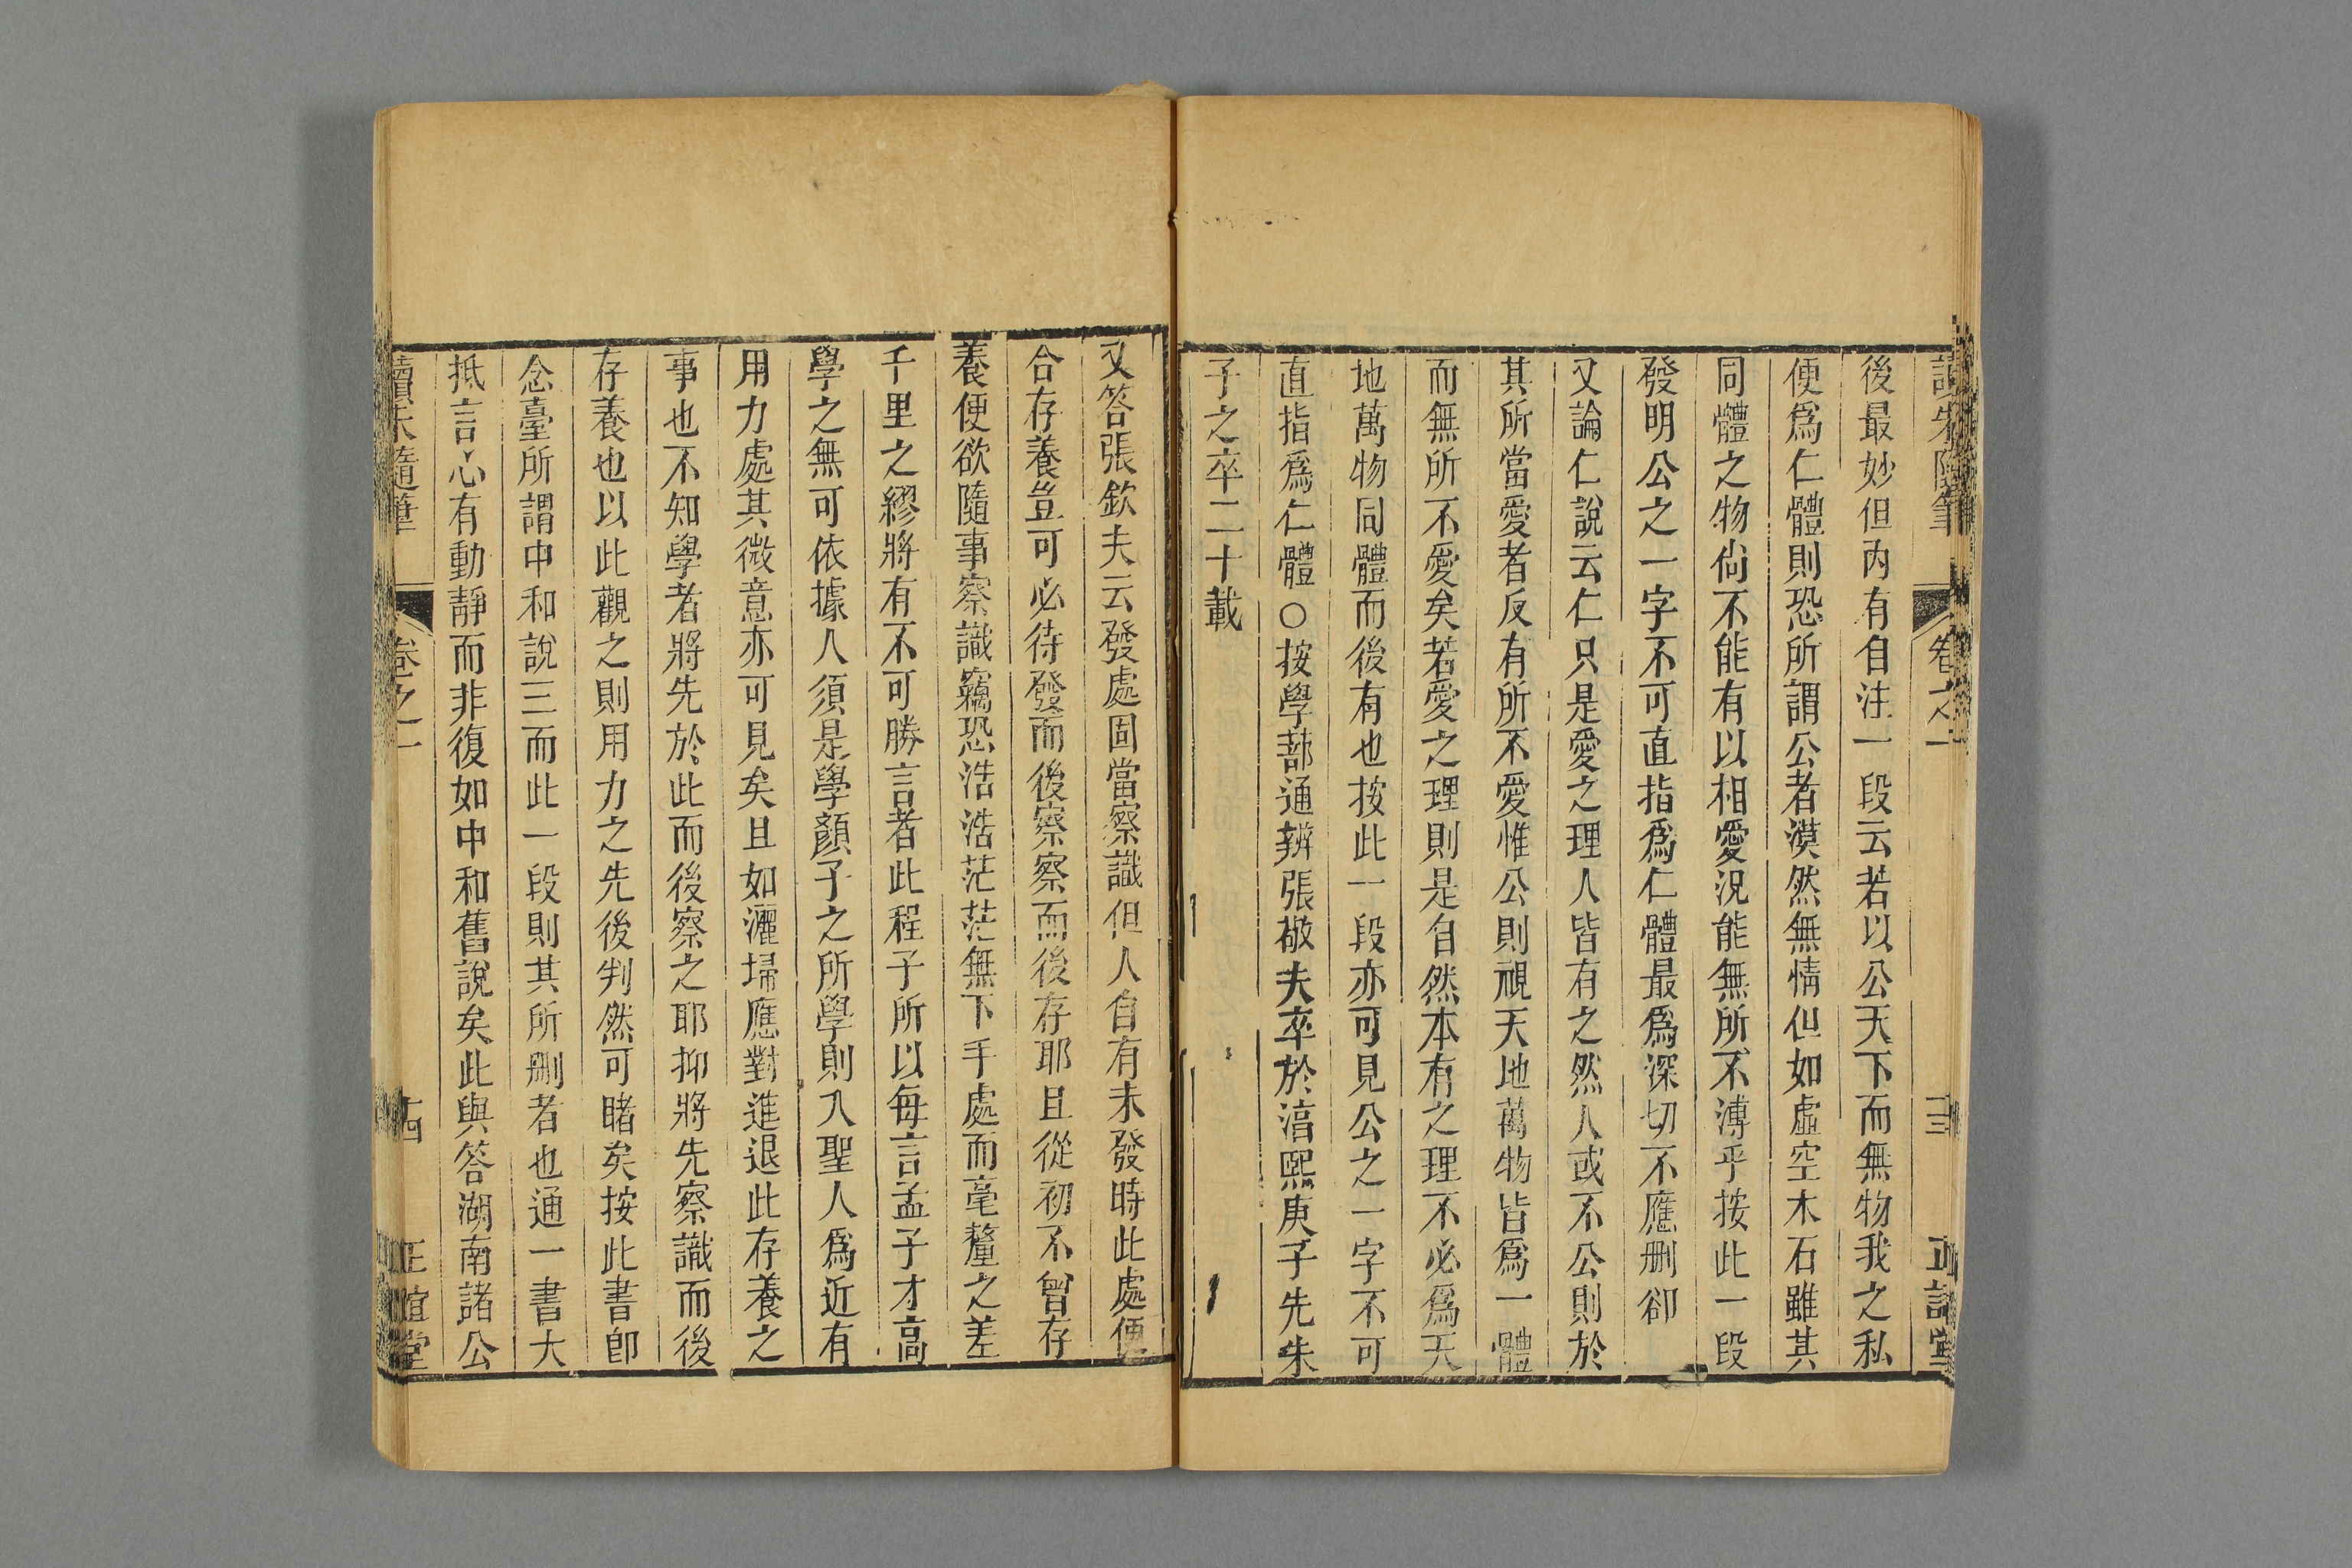 讀朱隨筆 卷之一 十三 正誼堂
後最妙但內有自注一段云若以公天下而無物我之私
便爲仁體則恐所謂公者漠然無情但如虛空木石雖其
同體之物尚不能有以相愛況能無所不溥乎按此一段
發明公之一字不可直指爲仁體最爲深切不應刪卻
又論仁說云仁只是愛之理人皆有之然人或不公則於
其所當愛者反有所不愛惟公則視天地萬物皆爲一體
而無所不愛矣若愛之理則是自然本有之理不必爲天
地萬物同體而後有也按此一段亦可見公之一字不可
直指爲仁體○按學蔀通辨張敬夫卒於淳熙庚子先朱
子之卒二十載
又答張欽夫云發處固當察識但人自有未發時此處便
合存養豈可必待發而後察察而後存耶且從初不曾存
養便欲隨事察識竊恐浩浩茫茫無下手處而毫釐之差
千里之繆將有不可勝言者此程子所以每言孟子才高
學之無可依據人須是學顏子之所學則入聖人爲近有
用力處其微意亦可見矣且如灑埽應對進退此存養之
事也不知學者將先於此而後察之耶抑將先察識而後
存養也以此觀之則用力之先後判然可睹矣按此書卽
念臺所謂中和說三而此一段則其所刪者也通一書大
抵言心有動靜而非復如中和舊說矣此與答湖南諸公
讀朱隨筆 卷之一 十四 正誼堂